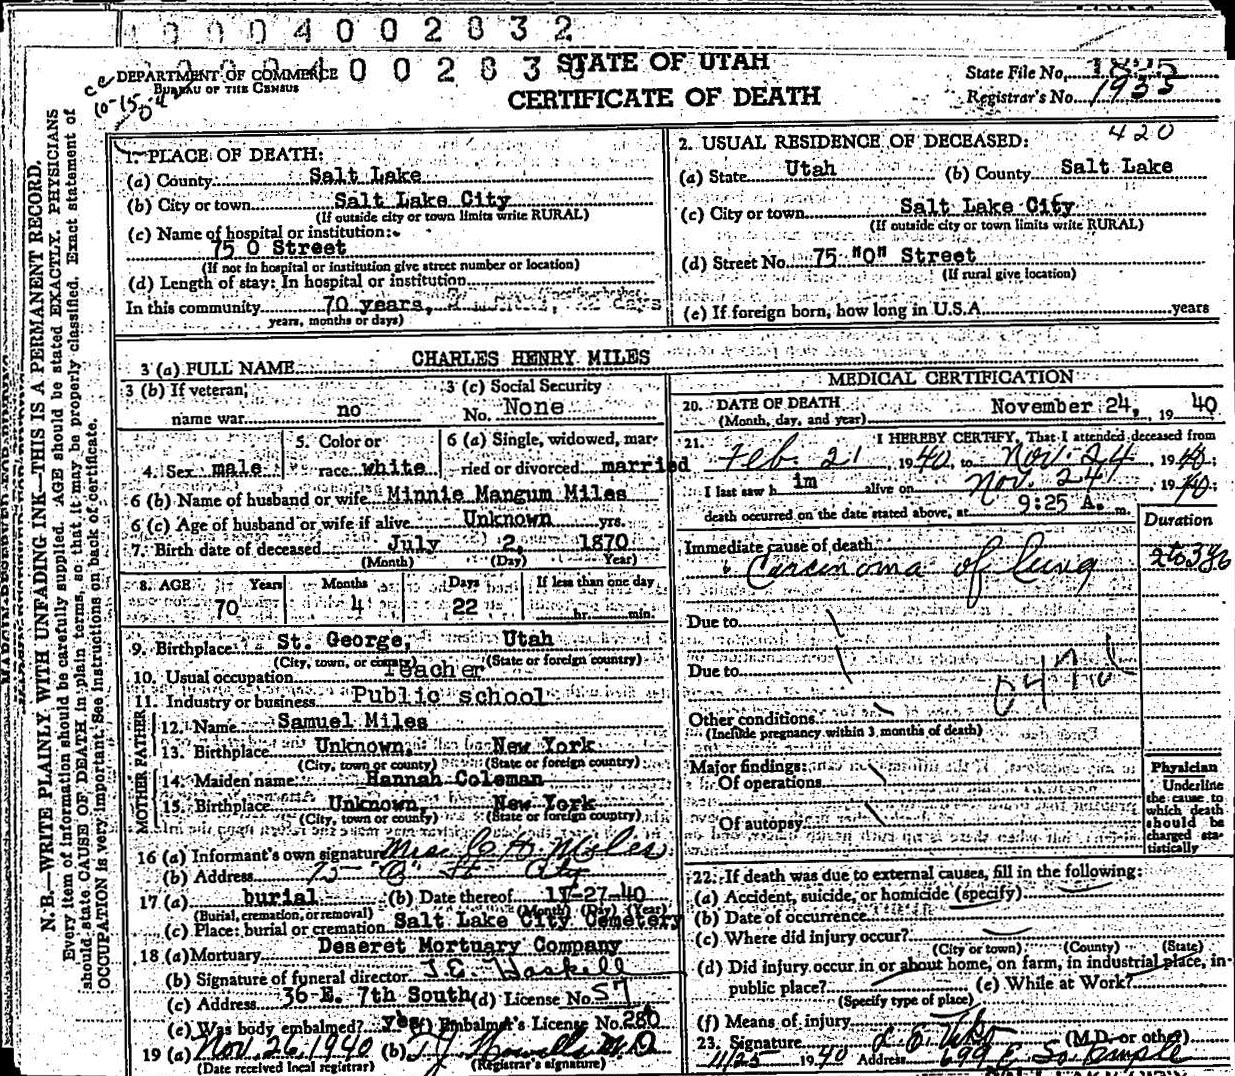 0004002832
00028
STATE OF UTAH
CERTIFICATE OF DEATH
DEPARTMENT OF COMMERCE
BUREAU OF THE CENSUS
State File No.
Registrar's No. 1935
420
N. B.—WRITE PLAINLY WITH UNFADING INK—THIS IS A PERMANENT RECORD.
Every item of information should be carefully supplied. AGE should be stated EXACTLY. PHYSICIANS
should state CAUSE OF DEATH in plain terms, so that it may be properly classified. Exact statement of
OCCUPATION is very important. See instructions on back of certificate.
1. PLACE OF DEATH:
(a) County Salt Lake
(b) City or town Salt Lake City
(If outside city or town limits write RURAL)
(c) Name of hospital or institution:
75 O Street
(If not in hospital or institution give street number or location)
(d) Length of stay: In hospital or institution
In this community 70 years, days
years, months or days)
2. USUAL RESIDENCE OF DECEASED:
(a) State Utah (b) County Salt Lake
(c) City or town Salt Lake City
(If outside city or town limits write RURAL)
(d) Street No. 75 "O" Street
(If rural give location)
(e) If foreign born, how long in U.S.A. years
3 (a) FULL NAME CHARLES HENRY MILES
3 (b) If veteran, name war no
3 (c) Social Security No. None
4. Sex male
5. Color or race white
6 (a) Single, widowed, married or divorced married
6 (b) Name of husband or wife Minnie Mangum Miles
6 (c) Age of husband or wife if alive Unknown yrs.
7. Birth date of deceased July 2, 1870
(Month) (Day) Year)
8. AGE Years Months Days If less than one day
70 4 22 hr. min.
9. Birthplace St. George, Utah
(City, town, or county) (State or foreign country)
10. Usual occupation Teacher
11. Industry or business Public school
FATHER
12. Name Samuel Miles
13. Birthplace Unknown, New York
(City, town or county) (State or foreign country)
MOTHER
14. Maiden name Hannah Coleman
15. Birthplace Unknown, New York
(City, town or county) (State or foreign country)
16 (a) Informant's own signature Mrs. C. H. Miles
(b) Address 75 - St. City
17 (a) burial (b) Date thereof 11-27-40
(Burial, cremation, or removal) (Month) (Day) (Year)
(c) Place: burial or cremation Salt Lake City Cemetery
18 (a) Mortuary Deseret Mortuary Company
(b) Signature of funeral director J. E. Haskell
(c) Address 36-E. 7th South (d) License No. 57
(e) Was body embalmed? yes (f) Embalmer's License No. 280
19 (a) Nov. 26, 1940 (b) M.D.
(Date received local registrar) (Registrar's signature)
MEDICAL CERTIFICATION
20. DATE OF DEATH November 24, 1940
(Month, day, and year)
21. I HEREBY CERTIFY, That I attended deceased from
Feb. 21 1940, to Nov. 24, 1940;
I last saw him alive on Nov. 24, 1940;
death occurred on the date stated above, at 9:25 A. m.
Duration
Immediate cause of death
Carcinoma of lung
Due to
Due to
Other conditions
(Include pregnancy within 3 months of death)
Major findings:
Of operations
Of autopsy
Physician
Underline
the cause to
which death
should be
charged sta-
tistically
22. If death was due to external causes, fill in the following:
(a) Accident, suicide, or homicide (specify)
(b) Date of occurrence
(c) Where did injury occur?
(City or town) (County) (State)
(d) Did injury occur in or about home, on farm, in industrial place, in
public place? (e) While at Work?
(Specify type of place)
(f) Means of injury
23. Signature (M.D. or other)
11/25 1940 Address 699 E So. Temple